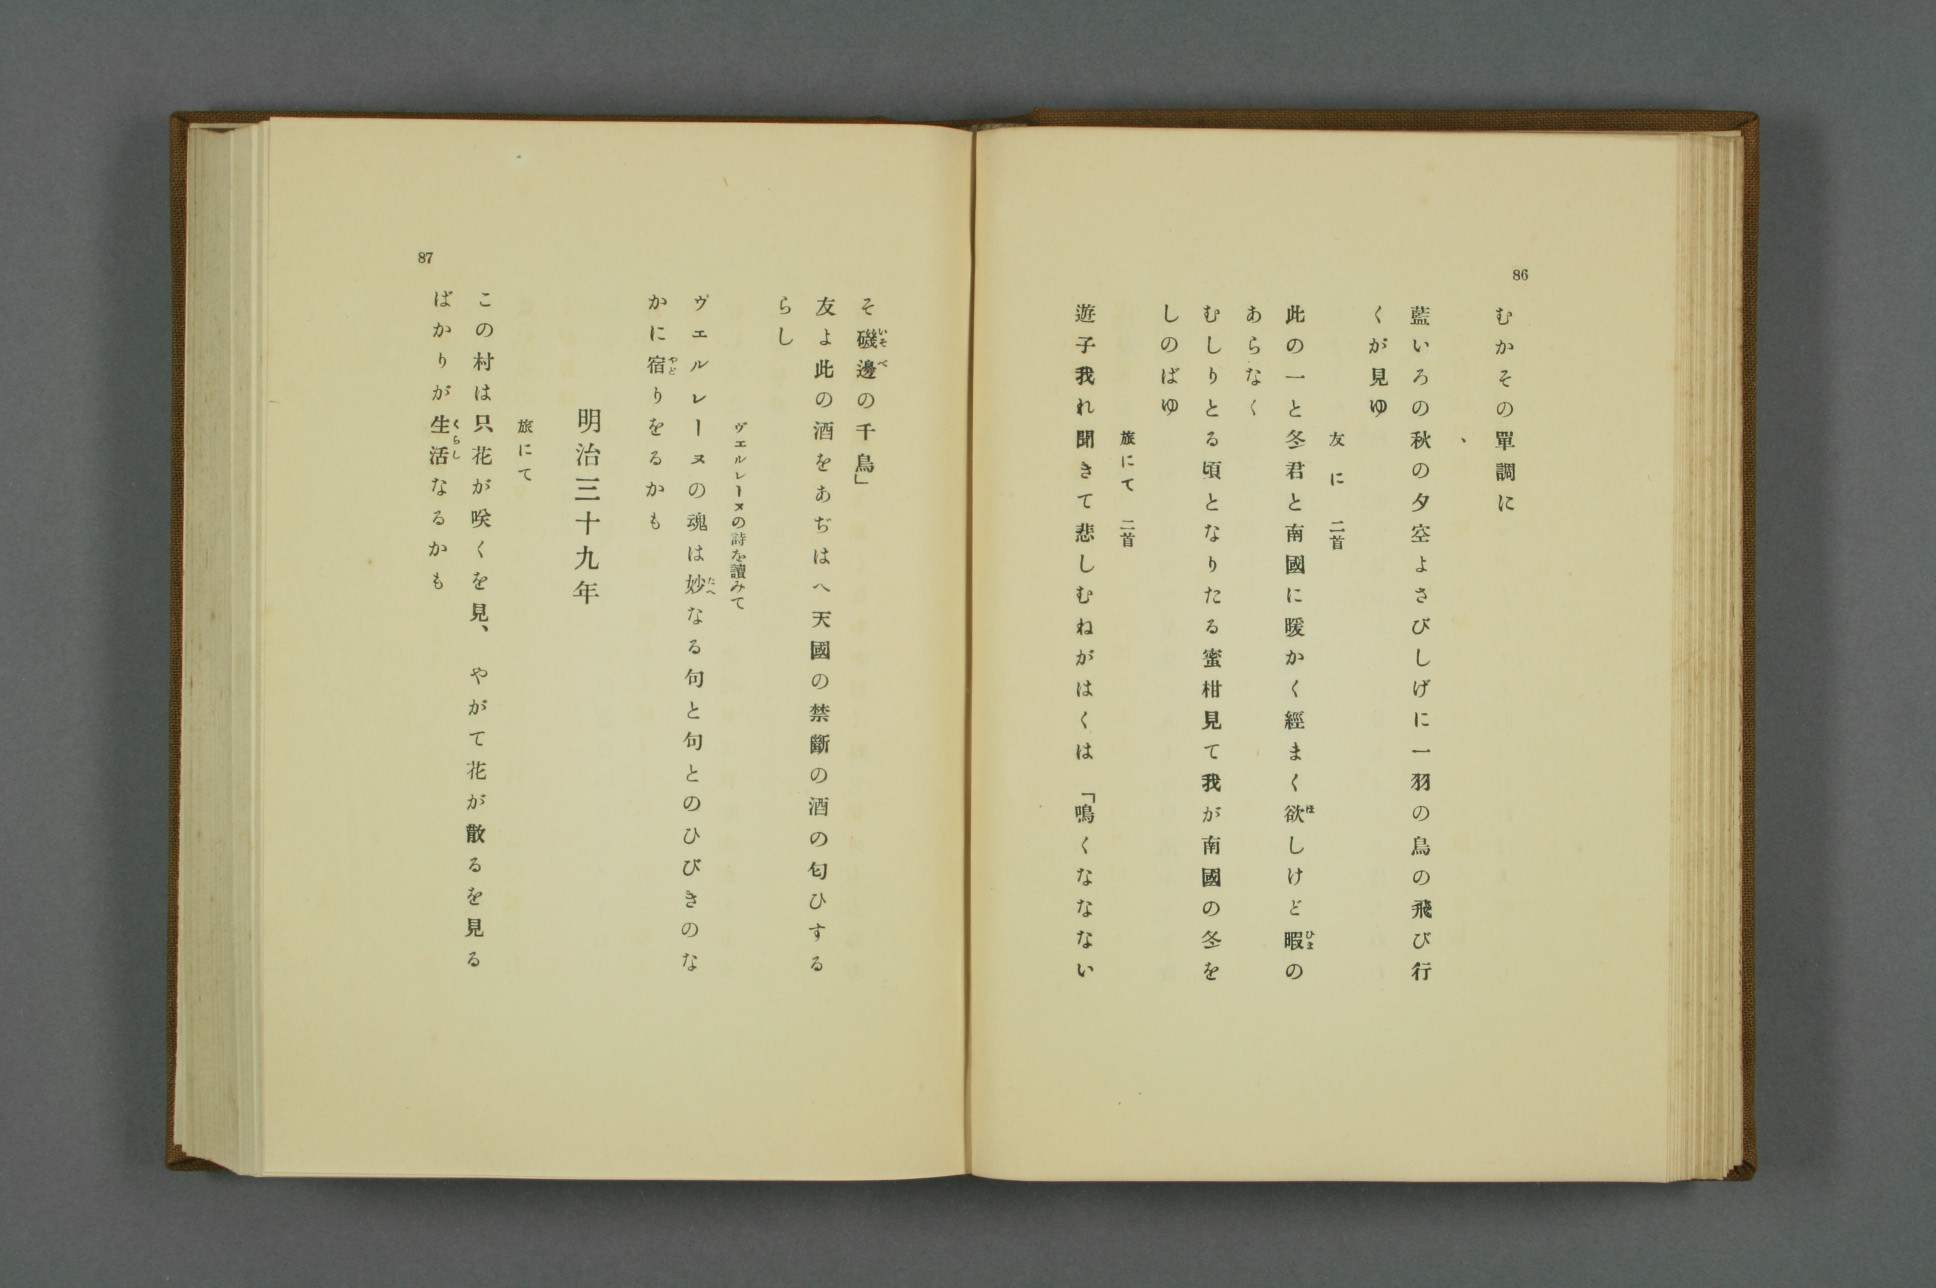 86
むかその單調に
、
藍いろの秋の夕空よさびしげに一羽の鳥の飛び行
くが見ゆ
友に　二首
此の一と冬君と南國に暖かく經まく欲しけど暇の
ほ
ひま
あらなく
むしりとる頃となりたる蜜柑見て我が南國の冬を
しのばゆ
旅にて　二首
遊子我れ聞きて悲しむねがはくは「鳴くなななない
そ磯邊の千鳥」
いそべ
友よ此の酒をあぢはへ天國の禁斷の酒の匂ひする
らし
ヴエルレーヌの詩を讀みて
ヴェルレーヌの魂は妙なる句と句とのひびきのな
たへ
かに宿りをるかも
やど
明治三十九年
旅にて
この村は只花が咲くを見、やがて花が散るを見る
ばかりが生活なるかも
くらし
87